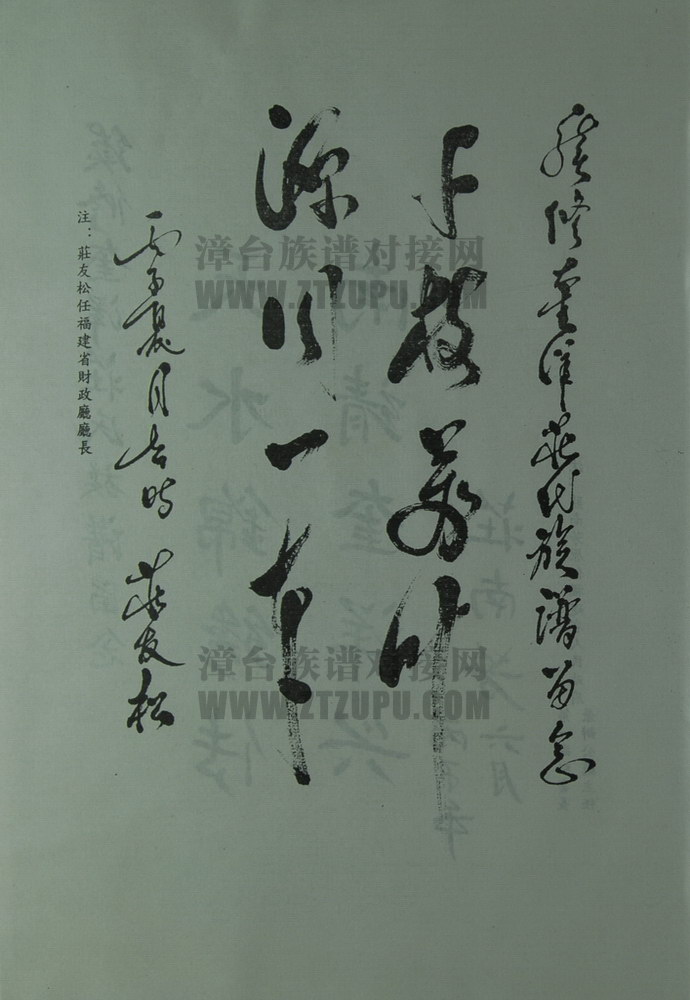 續修奎洋莊氏族譜留念
千枝萬葉
源同一本
丙子夏月吉時 莊友松
注：莊友松任福建省財政廳廳長
漳台族谱对接网
WWW.ZTZUPU.COM
漳台族谱对接网
WWW.ZTZUPU.COM